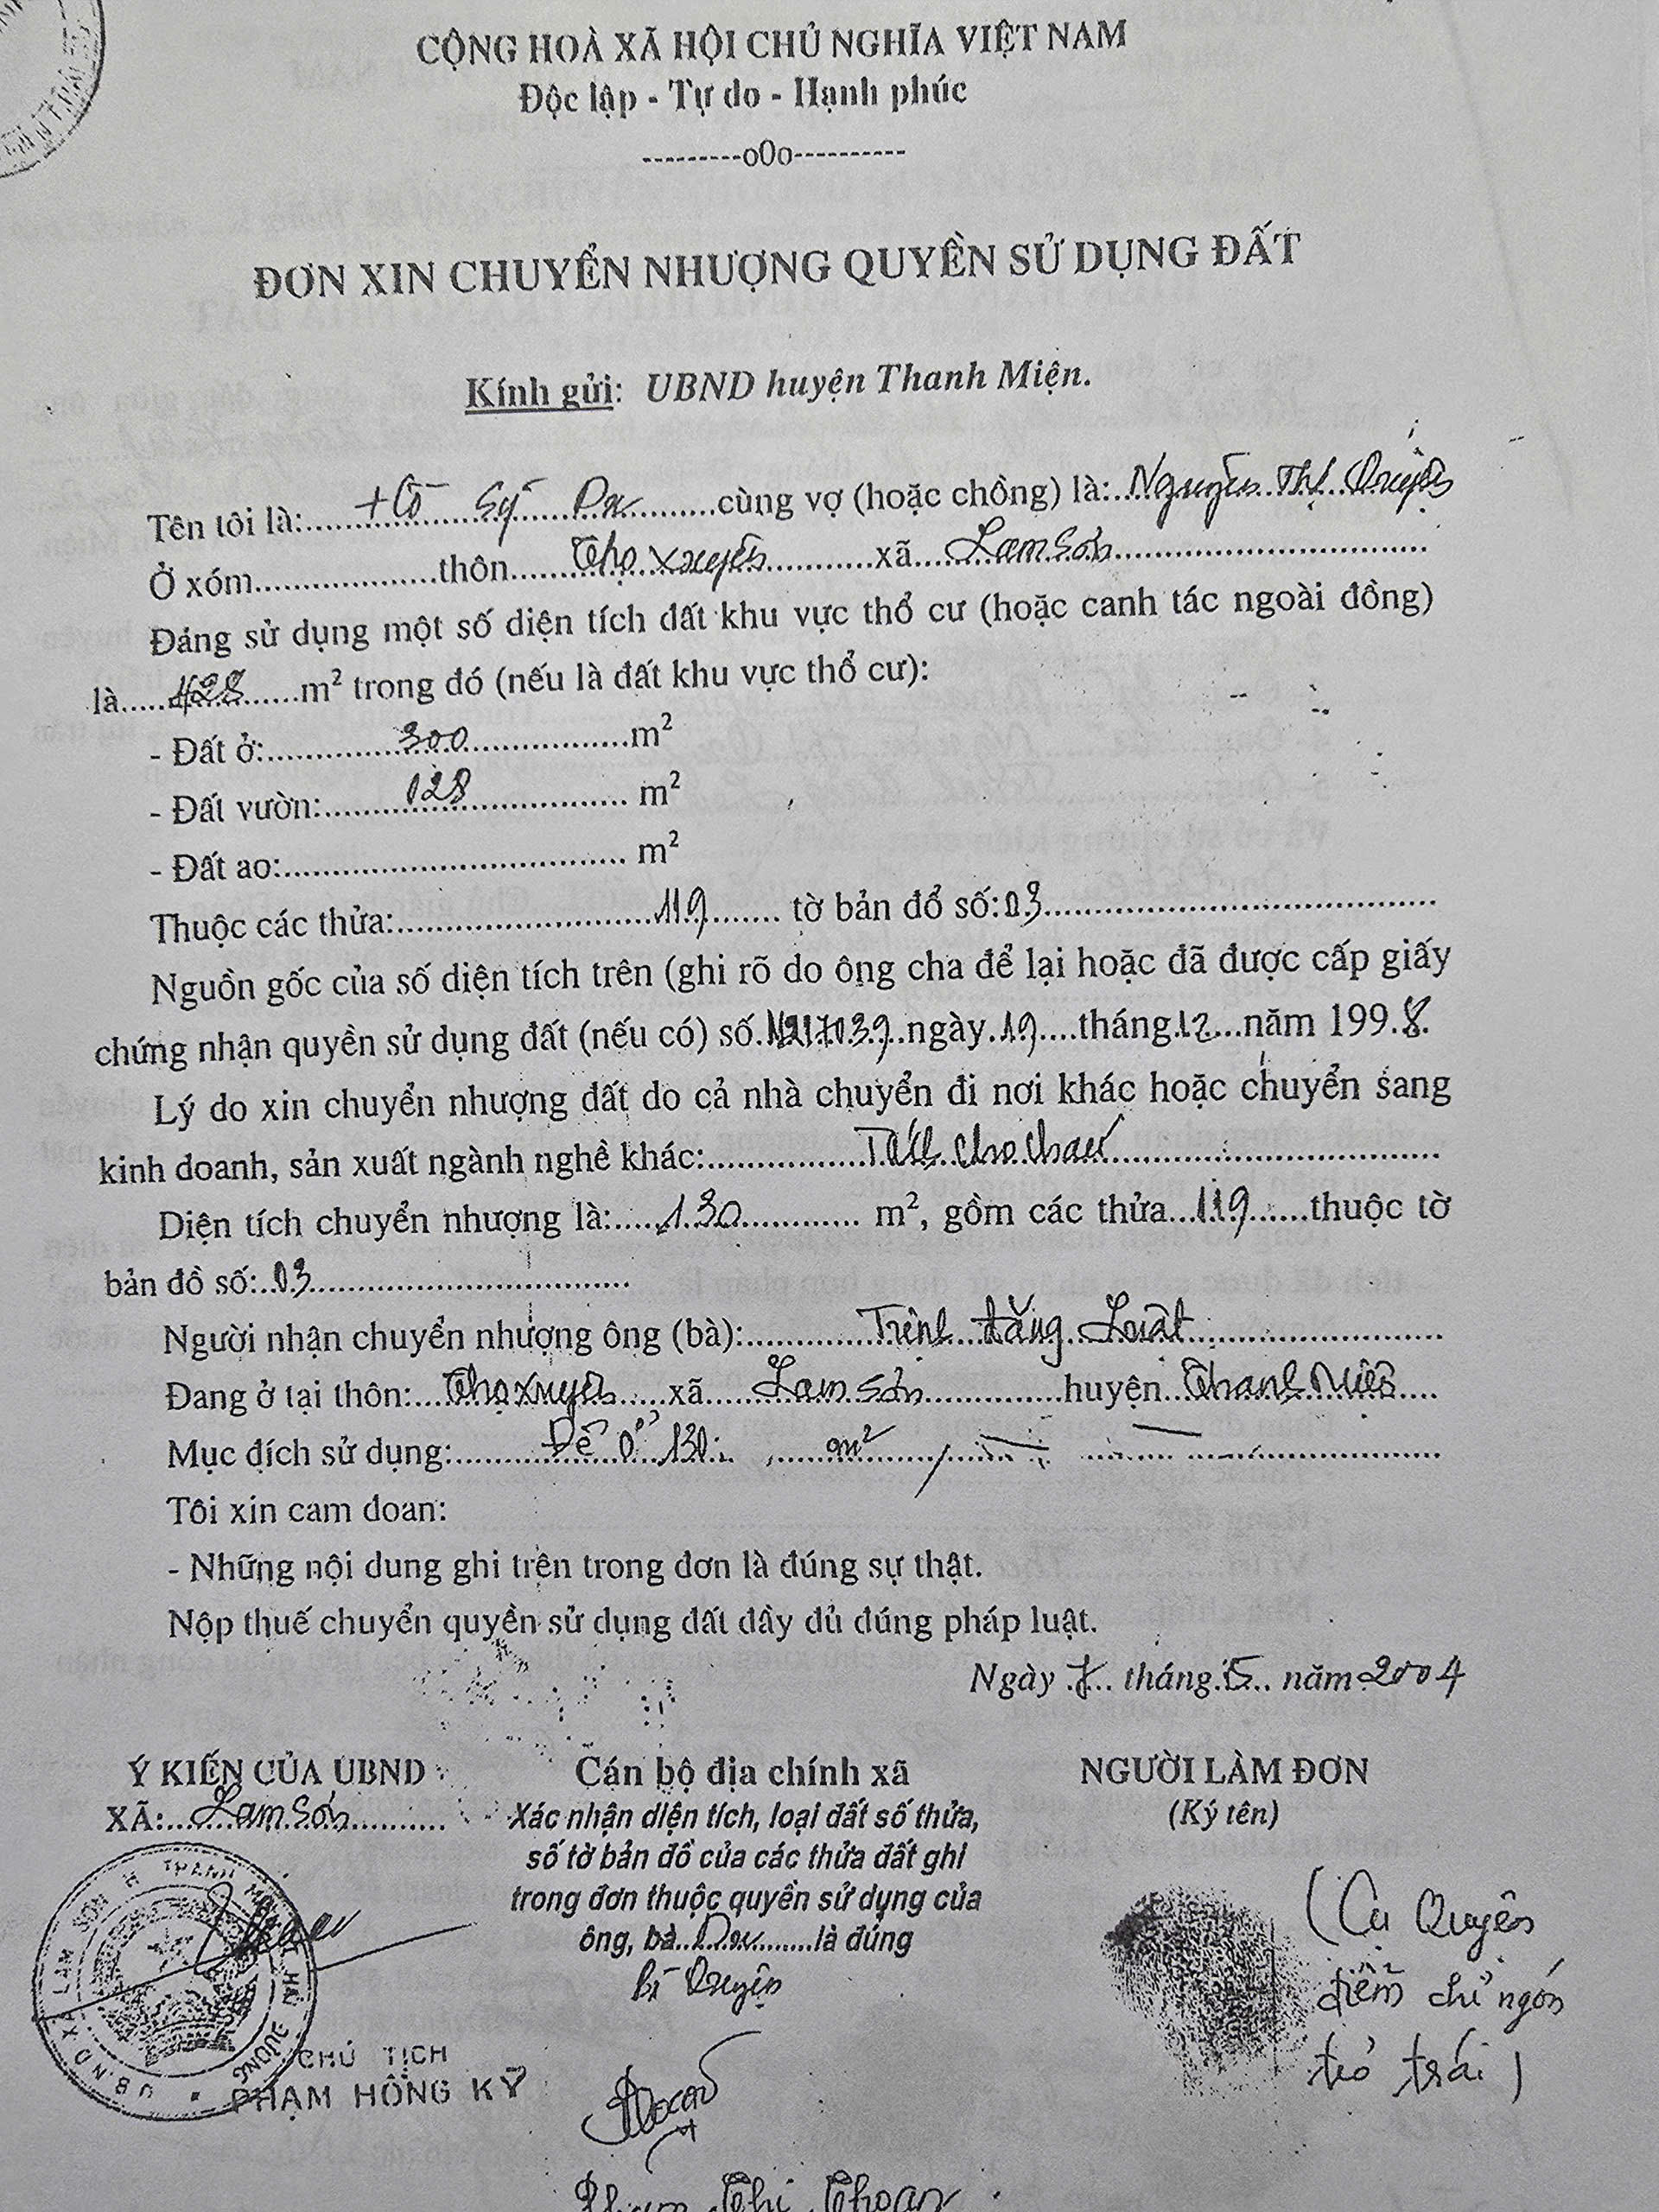 CỘNG HOÀ XÃ HỘI CHỦ NGHĨA VIỆT NAM
Độc lập - Tự do - Hạnh phúc
---------o0o----------
ĐƠN XIN CHUYỂN NHƯỢNG QUYỀN SỬ DỤNG ĐẤT
Kính gửi: UBND huyện Thanh Miện.
Tên tôi là:....... Sỹ Du .......cùng vợ (hoặc chồng) là:..Nguyễn Thị Quyện
Ở xóm..................thôn......Thọ Xuyên..........xã...Lam Sơn..............................
Đang sử dụng một số diện tích đất khu vực thổ cư (hoặc canh tác ngoài đồng)
là.....428......m² trong đó (nếu là đất khu vực thổ cư):
- Đất ở:..............300................m²
- Đất vườn:.........128................ m²
- Đất ao:................................... m²
Thuộc các thửa:..........................119........ tờ bản đồ số:03........................................
Nguồn gốc của số diện tích trên (ghi rõ do ông cha để lại hoặc đã được cấp giấy
chứng nhận quyền sử dụng đất (nếu có) số.N217039..ngày.19....tháng.12...năm 199.8.
Lý do xin chuyển nhượng đất do cả nhà chuyển đi nơi khác hoặc chuyển sang
kinh doanh, sản xuất ngành nghề khác:................Tách cho cháu................................
Diện tích chuyển nhượng là:.....130............ m², gồm các thửa...119......thuộc tờ
bản đồ số:..03.................................
Người nhận chuyển nhượng ông (bà):............Trịnh đăng Luật.........................
Đang ở tại thôn:...Thọ Xuyên.....xã.....Lam Sơn..............huyện..Thanh Miện....
Mục đích sử dụng:..........Để ở 130 m²
Tôi xin cam đoan:
- Những nội dung ghi trên trong đơn là đúng sự thật.
Nộp thuế chuyển quyền sử dụng đất đầy đủ đúng pháp luật.
Ngày .7.. tháng.5.. năm 2004
Ý KIẾN CỦA UBND
XÃ:...Lam Sơn..........
Cán bộ địa chính xã
Xác nhận diện tích, loại đất số thửa,
số tờ bản đồ của các thửa đất ghi
trong đơn thuộc quyền sử dụng của
ông, bà..Du........là đúng
bà Quyện
NGƯỜI LÀM ĐƠN
(Ký tên)
(Cụ Quyện
điểm chỉ ngón
trỏ trái)
UBND XÃ LAM SƠN H THANH MIỆN HẢI DƯƠNG
CHỦ TỊCH
PHẠM HỒNG KỲ
Phạm Thị Thoan